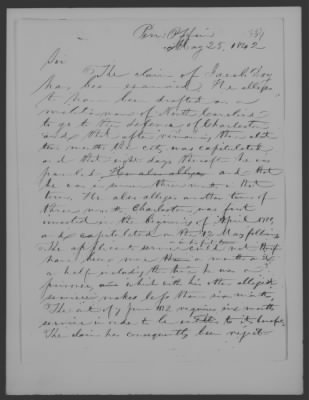 Pen: Office
May 25, 1842
Sir
The claim of Jacob
has been examined. He alleges
to have been drafted as a
militia man of North Carolina
to go to the defence of Charleston
and that after remaining there about
two months the city was capitulated
and that eight days thereafter he was
paroled, He also alleges and that
he was in service three months that
tour. He also alleges another tour of
three months. Charleston was first
invested in the beginning of April 1780,
and capitulated on the 12 May following
The applicant's service could not
have been more than a month &
a half including the time he was a
prisoner, which with his other alleged
service makes less than six months.
The act of 7 June 1832 requires six months
service in order to be entitled to its benefits.
The claim has consequently been reject